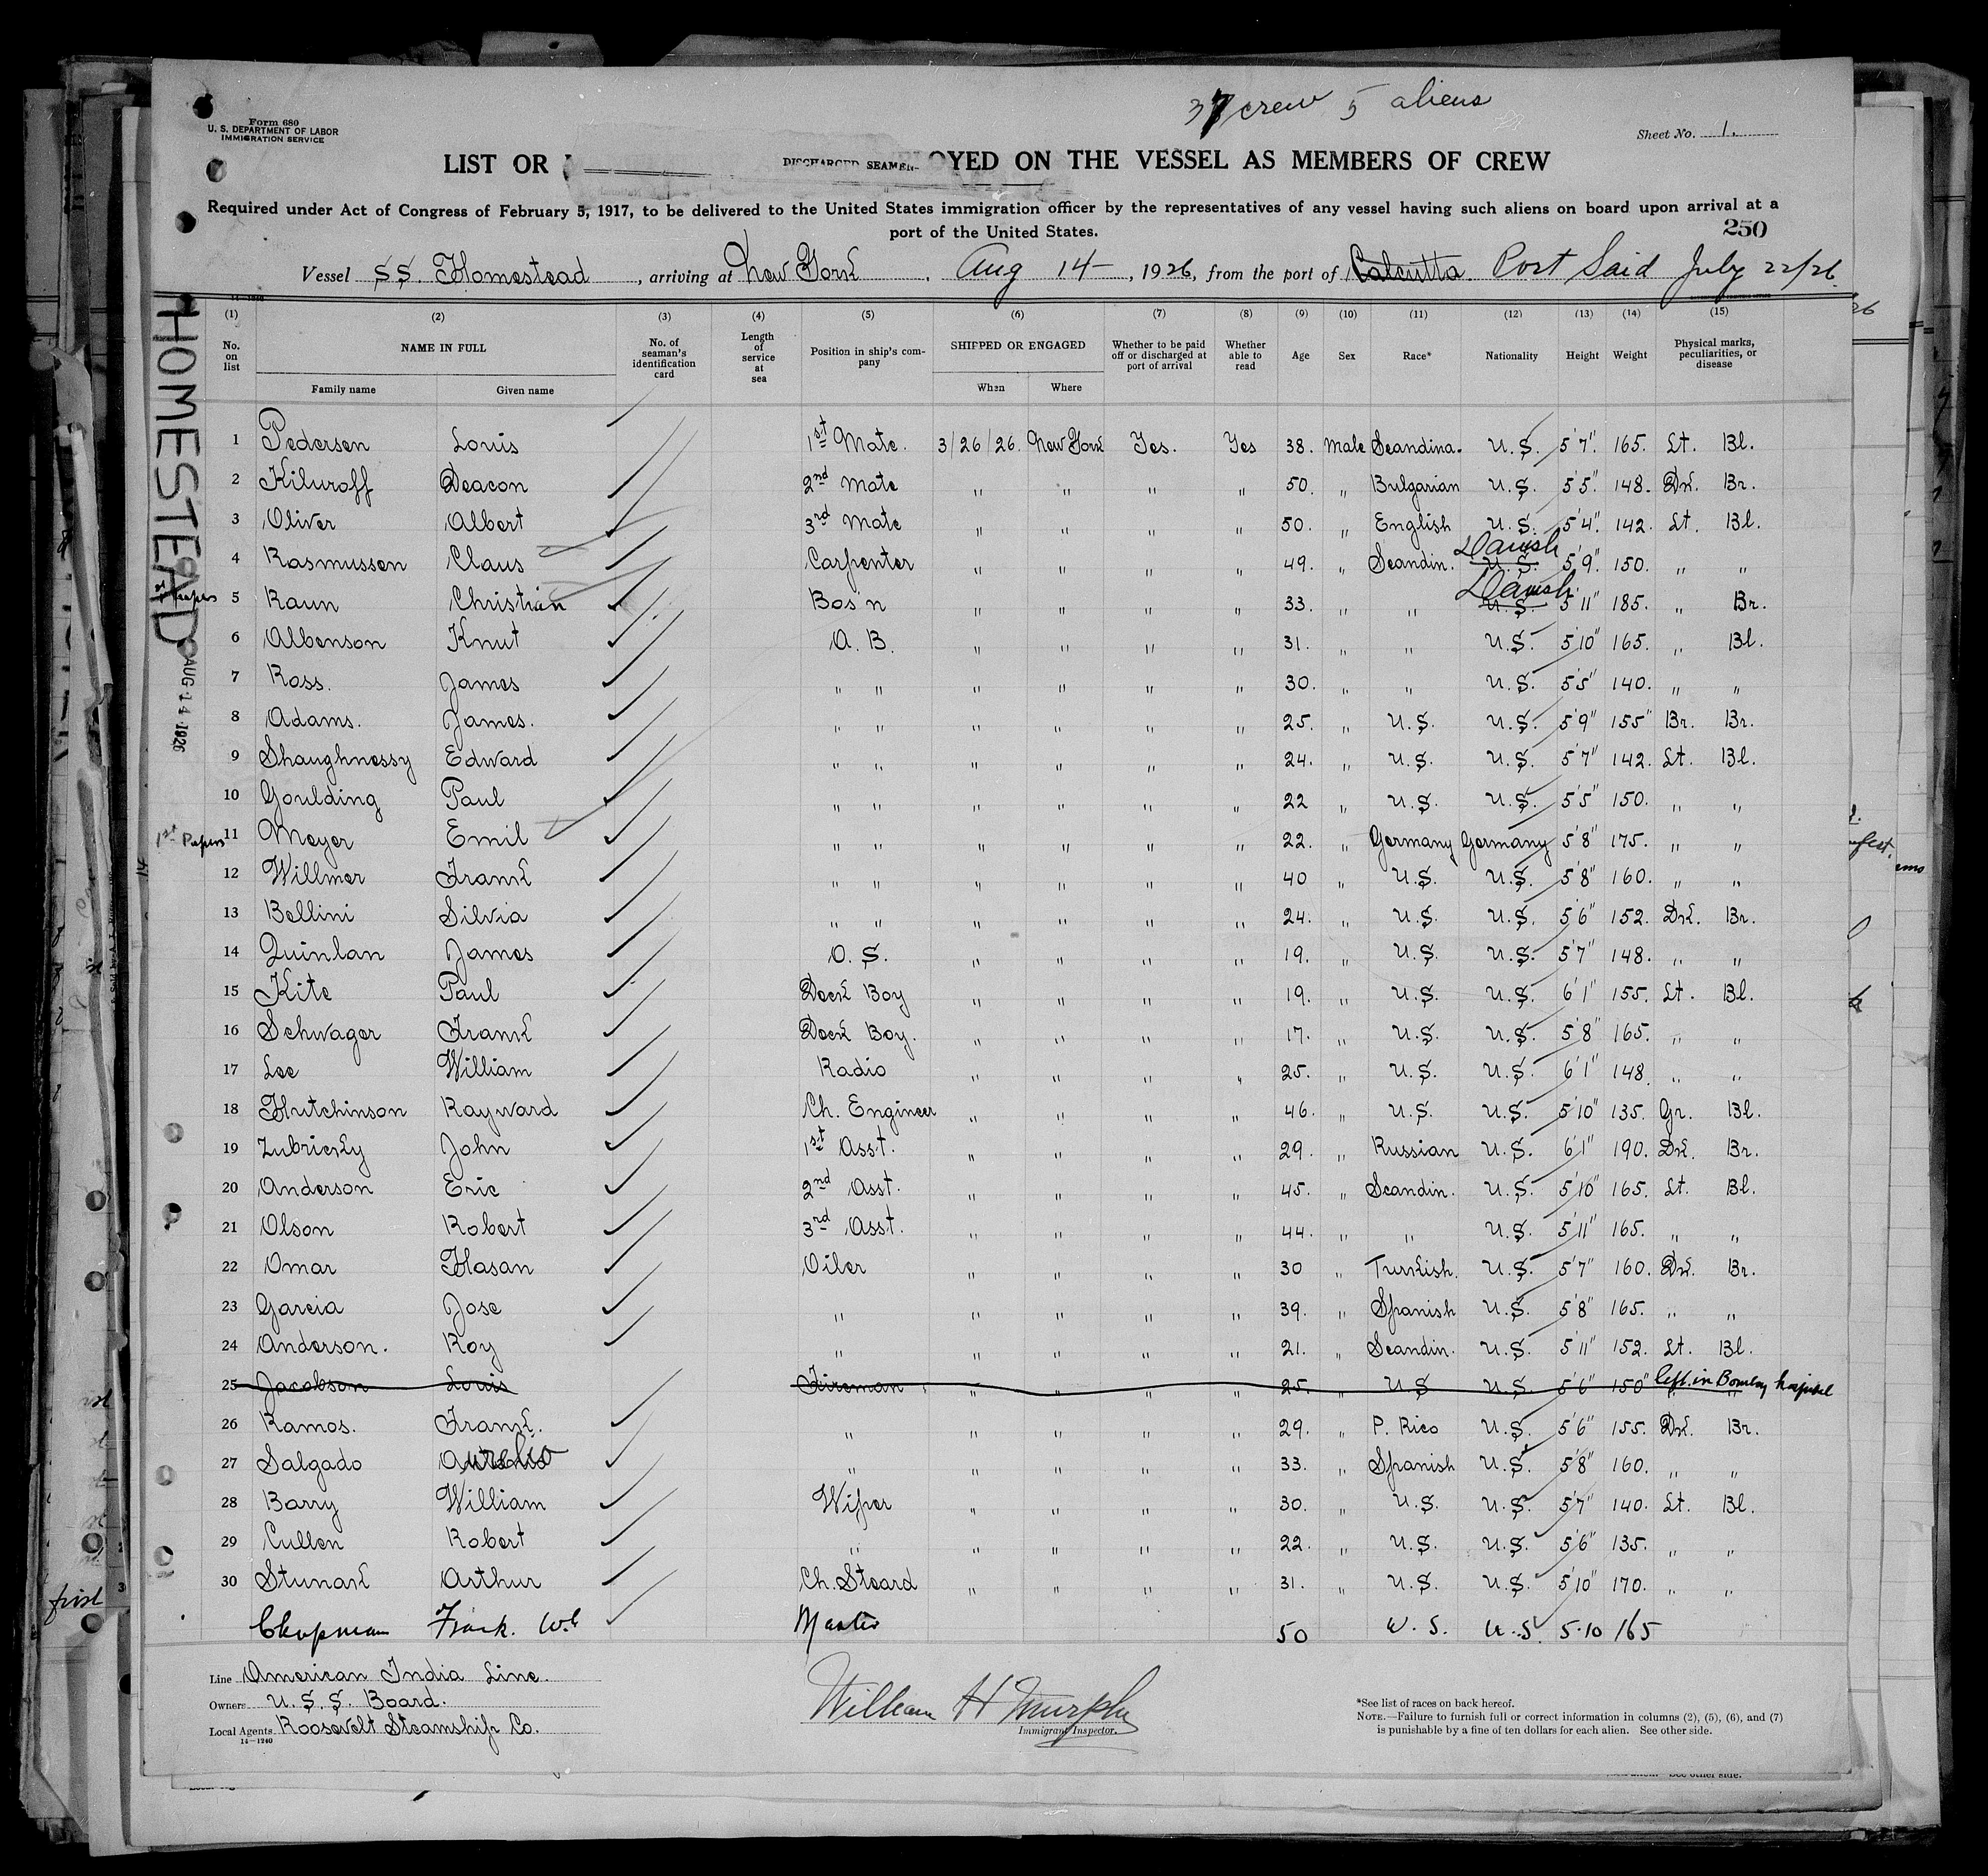 37 crew 5 aliens
Form 680
U. S. DEPARTMENT OF LABOR
IMMIGRATION SERVICE
Sheet No. 1.
LIST OR DISCHARGED SEAMEN OYED ON THE VESSEL AS MEMBERS OF CREW
Required under Act of Congress of February 5, 1917, to be delivered to the United States immigration officer by the representatives of any vessel having such aliens on board upon arrival at a
port of the United States.
250
Vessel SS. Homestead, arriving at New York, Aug 14, 1926, from the port of Calcutta Port Said July 22/26
HOMESTEAD
AUG 14 1926
(1) (2) (3) (4) (5) (6) (7) (8) (9) (10) (11) (12) (13) (14) (15)
No. on list NAME IN FULL No. of seaman's identification card Length of service at sea Position in ship's company SHIPPED OR ENGAGED Whether to be paid off or discharged at port of arrival Whether able to read Age Sex Race* Nationality Height Weight Physical marks, peculiarities, or disease
Family name Given name When Where
1 Pedersen Louis 1st Mate. 3/26/26. New York Yes. Yes 38. Male Scandina. U.S. 5'7" 165. Lt. Bl.
2 Kiluroff Deacon 2nd Mate " " " " 50. " Bulgarian U.S. 5'5" 148. Dk. Br.
3 Oliver Albert 3rd Mate " " " " 50. " English U.S. 5'4" 142. Lt. Bl.
4 Rasmussen Claus Carpenter " " " " 49. " Scandin. U.S. Danish 5'9" 150. " "
Papers 5 Raun Christian Bos'n " " " " 33. " " U.S. Danish 5'11" 185. " Br.
6 Albenson Knut A. B. " " " " 31. " " U.S. 5'10" 165. " Bl.
7 Ross. James " " " " " " 30. " " U.S. 5'5" 140. " "
8 Adams. James. " " " " " " 25. " U.S. U.S. 5'9" 155" Br. Br.
9 Shaughnessy Edward " " " " " " 24. " U.S. U.S. 5'7" 142. Lt. Bl.
10 Goulding Paul " " " " " " 22 " U.S. U.S. 5'5" 150. " "
1st Papers 11 Meyer Emil " " " " " " 22. " Germany Germany 5'8" 175. " "
12 Willmer Frank " " " " " " 40 " U.S. U.S. 5'8" 160. " "
13 Bellini Silvia " " " " " " 24. " U.S. U.S. 5'6" 152. Dk. Br.
14 Quinlan James O. S. " " " " 19. " U.S. U.S. 5'7" 148. " "
15 Kite Paul Deck Boy " " " " 19. " U.S. U.S. 6'1" 155. Lt. Bl.
16 Schwager Frank Deck Boy. " " " " 17. " U.S. U.S. 5'8" 165. " "
17 Lee William Radio " " " " 25. " U.S. U.S. 6'1" 148. " "
18 Hutchinson Rayward Ch. Engineer " " " " 46. " U.S. U.S. 5'10" 135. Gr. Bl.
19 Zubricky John 1st Asst. " " " " 29. " Russian U.S. 6'1" 190. Dk. Br.
20 Anderson Eric 2nd Asst. " " " " 45. " Scandin. U.S. 5'10" 165. Lt. Bl.
21 Olson Robert 3rd Asst. " " " " 44. " " U.S. 5'11" 165. " "
22 Omar Hasan Oiler " " " " 30 " Turkish. U.S. 5'7" 160. Dk. Br.
23 Garcia Jose " " " " " 39. " Spanish U.S. 5'8" 165. " "
24 Anderson. Roy " " " " " 21. " Scandin. U.S. 5'11" 152. Lt. Bl.
25 Jacobson Louis Fireman " " " " 25. " U.S U.S. 5'6" 150" left in Bombay hospital
26 Ramos. Frank. " " " " " 29. " P. Rico U.S. 5'6" 155. Dk. Br.
27 Salgado Aurelio " " " " " 33. " Spanish U.S. 5'8" 160. " "
28 Barry William Wiper " " " " 30. " U.S. U.S. 5'7" 140. Lt. Bl.
29 Cullen Robert " " " " " 22. " U.S. U.S. 5'6" 135. " "
30 Stunak Arthur Ch. Steard " " " " 31. " U.S. U.S. 5'10" 170. " "
Chapman Frank. Wm Master 50 U.S. U.S. 5.10 165
Line American India Line.
Owners U.S.S. Board.
Local Agents Roosevelt Steamship Co.
14—1240
William H Murphy
Immigrant Inspector.
*See list of races on back hereof.
NOTE.—Failure to furnish full or correct information in columns (2), (5), (6), and (7)
is punishable by a fine of ten dollars for each alien. See other side.
first